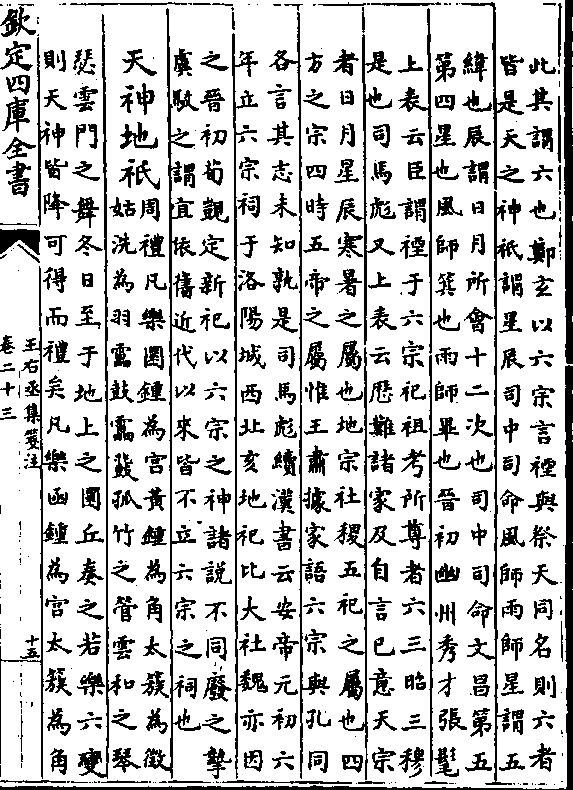 此其謂六也鄭玄以六宗言禋與祭天同名則六者
皆是天之神祇謂星辰司中司命風師雨師星謂五
緯也辰謂日月所會十二次也司中司命文昌第五
第四星也風師箕也雨師畢也晉初幽州秀才張髦
上表云臣謂禋于六宗祀祖考所尊者六三昭三穆
是也司馬彪又上表云歴難諸家及自言已意天宗
者日月星辰寒暑之屬也地宗社稷五祀之屬也四
方之宗四時五帝之屬惟王肅據家語六宗與孔同
各言其志未知孰是司馬彪續漢書云安帝元初六
年立六宗祠于洛陽城西北亥地祀比大社魏亦因
之晉初荀顗定新祀以六宗之神諸說不同廢之摯
虞駁之謂宜依舊近代以來皆不立六宗之祠也
天神地祇周禮凡樂圜鍾為宮黃鍾為角太簇為徵
姑洗為羽靁鼓靁鼗孤竹之管雲和之琴
瑟雲門之舞冬日至于地上之圜丘奏之若樂六變
則天神皆降可得而禮矣凡樂函鍾為宮太簇為角
欽定四庫全書
王右丞集箋注
卷二十三
十五